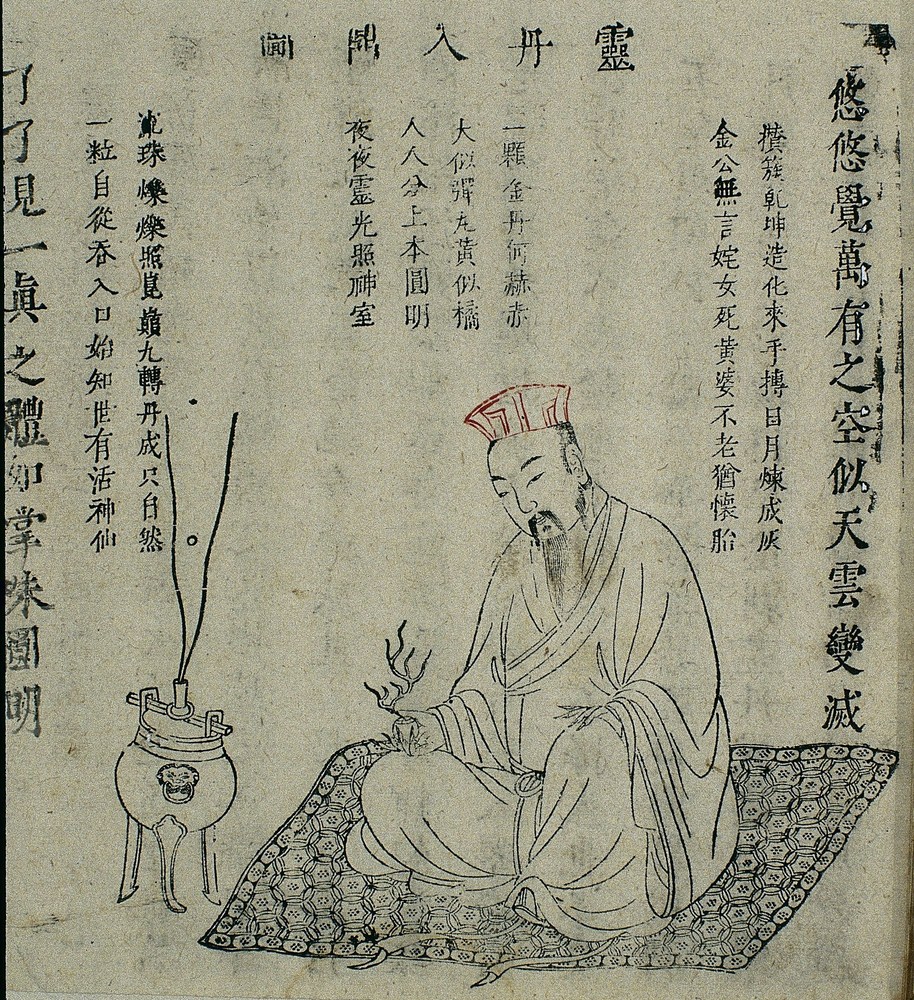 靈丹入鼎圖
悠悠覺萬有之空似天雲變滅
攢簇乾坤造化來手摶日月煉成灰
金公無言姹女死黃婆不老猶懷胎
一顆金丹何赫赤
大似彈丸黃似橘
人人分上本圓明
夜夜靈光照神室
流珠爍爍照崑巔九轉丹成只自然
一粒自從吞入口始知世有活神仙
了了見一真之體如掌珠圓明